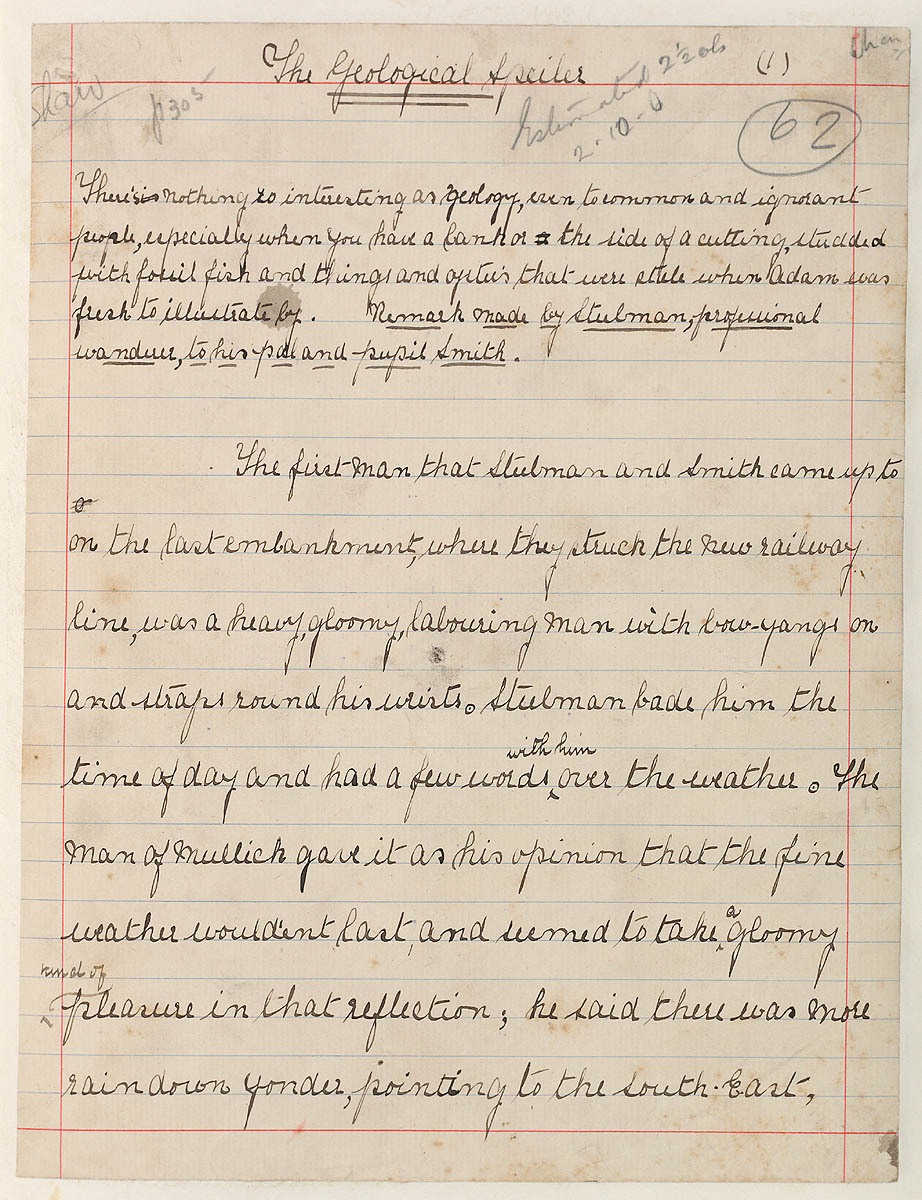 The Geological Speiler
(1)
Shaw
p305
Estimated 2½ cols
2-10-0
62
There's is nothing so interesting as geology, even to common and ignorant
people, especially when you have a bank or a the side of a cutting, studded
with fossil fish and things and oysters that were stale when Adam was
fresh to illustrate by. Remark made by Steelman, professional
wanderer, to his pal and pupil Smith.
The first man that Steelman and Smith came up to
o
on the last embankment, where they struck the new railway
line, was a heavy, gloomy, labouring man with bow-yangs on
and straps round his wrists. Steelman bade him the
with him
time of day and had a few words over the weather. The
man of mullick gave it as his opinion that the fine
a
weather would'ent last, and seemed to take gloomy
kind of
pleasure in that reflection; he said there was more
rain down yonder, pointing to the south-East,